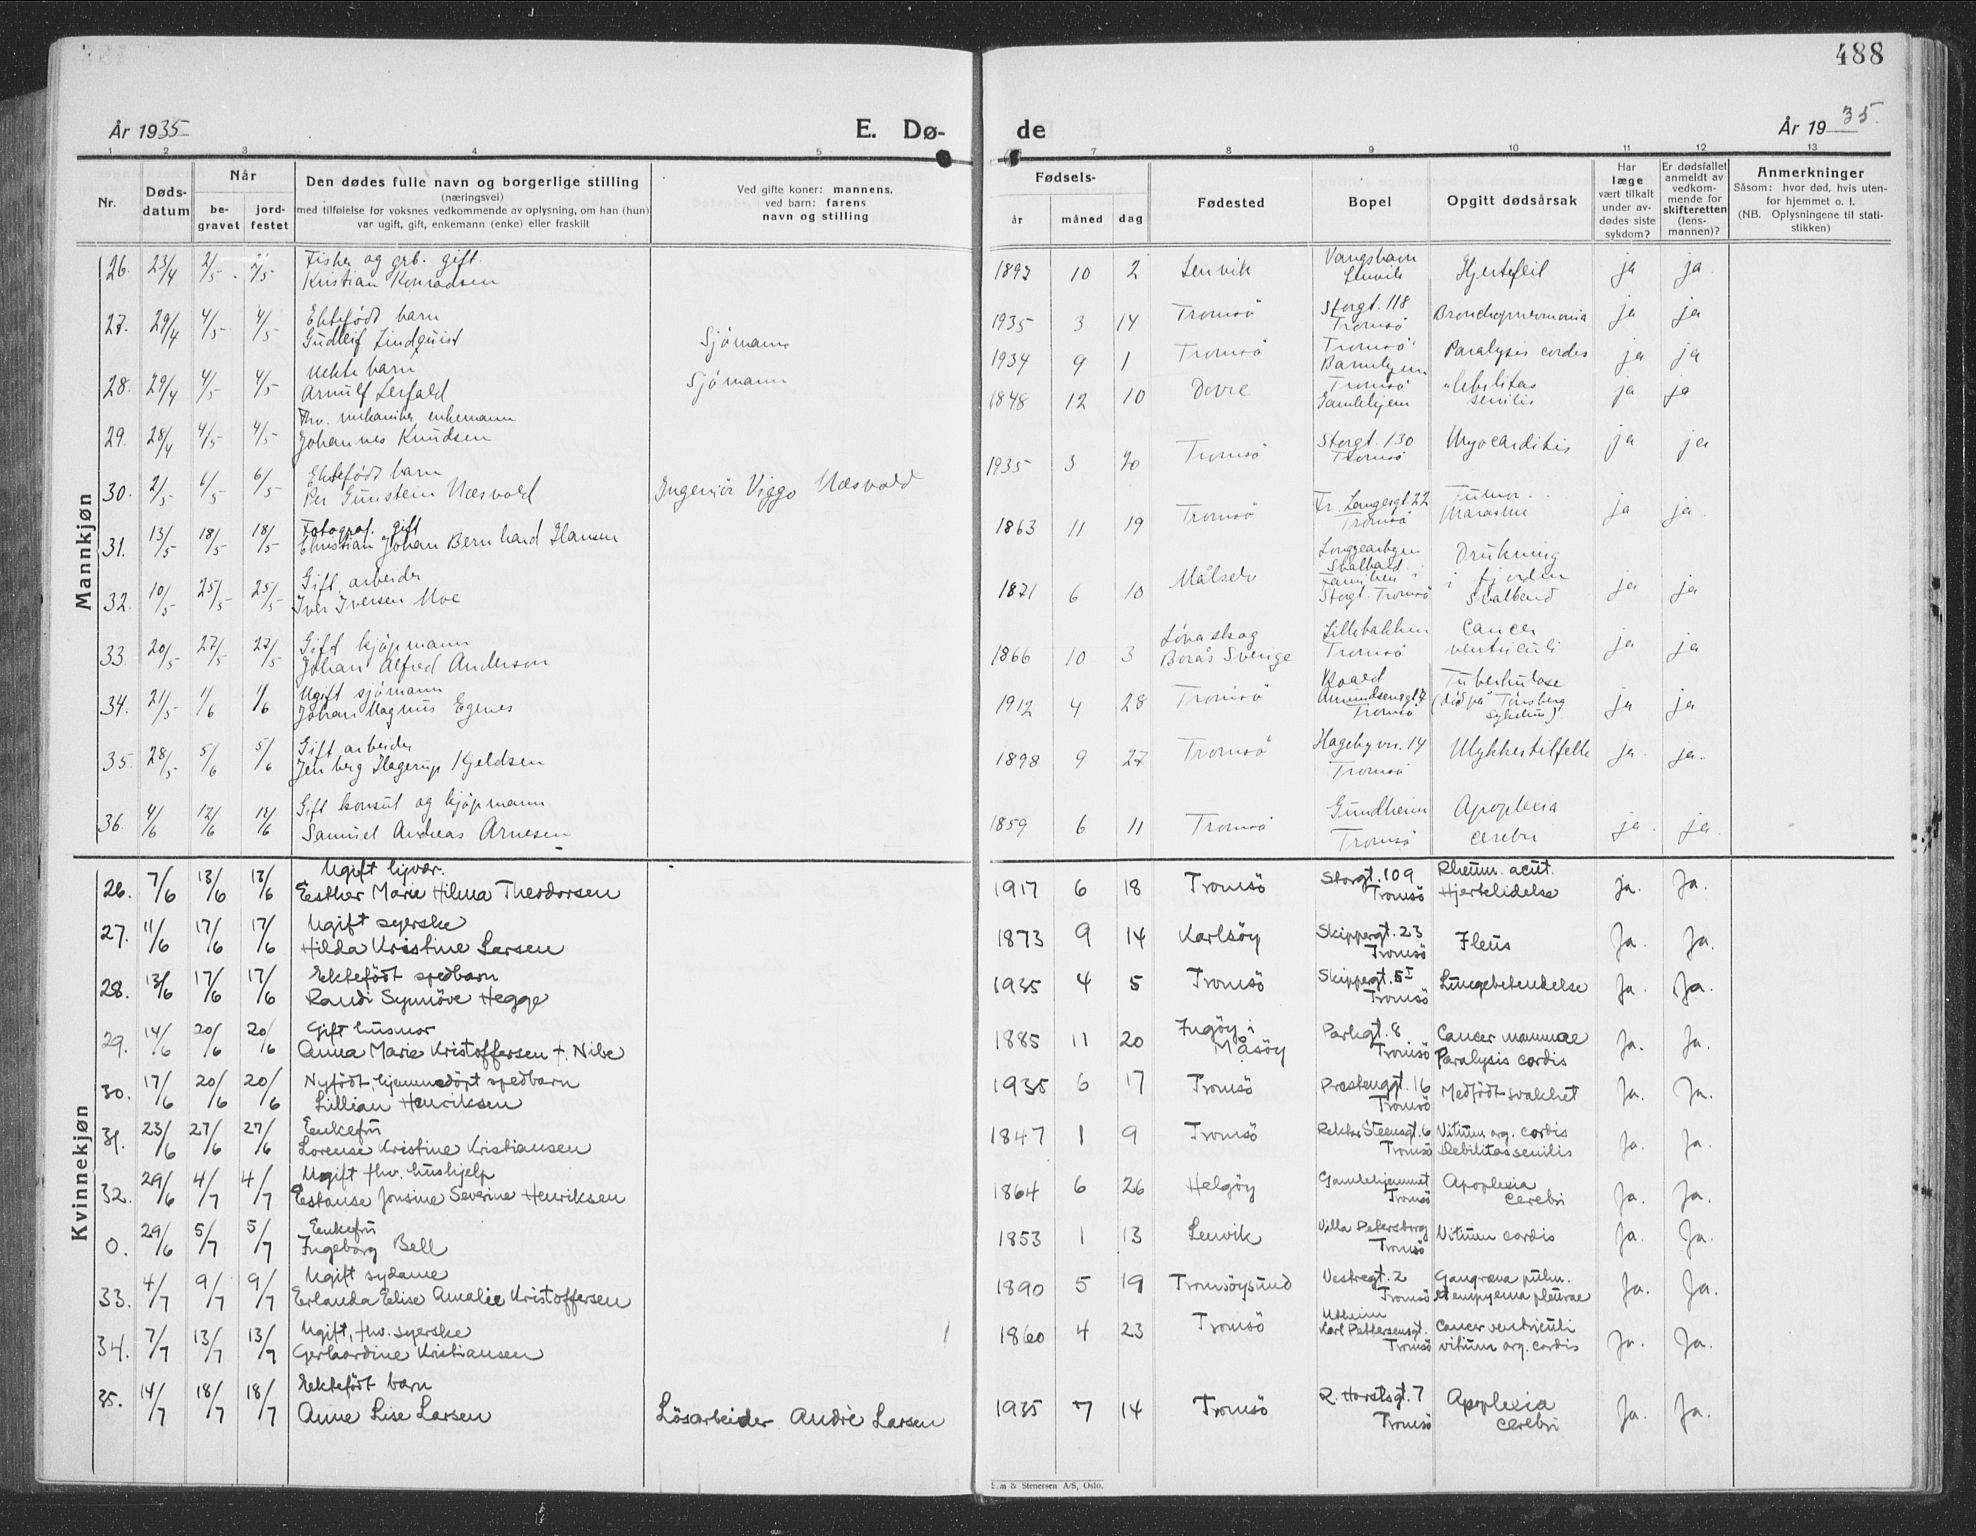 488
År 1935 E. Dø- de År 1935.
1 2 3 4 5 7 8 9 10 11 12 13
Nr. Døds-datum Når be-gravet jord-festet Den dødes fulle navn og borgerlige stilling (næringsvei) med tilføielse for voksnes vedkommende av oplysning, om han (hun) var ugift, gift, enkemann (enke) eller fraskilt Ved gifte koner: mannens, ved barn: farens navn og stilling Fødsels- år måned dag Fødested Bopel Opgitt dødsårsak Har læge vært tilkalt under av-dødes siste sykdom? Er dødsfallet anmeldt av vedkom-mende for skifteretten (lens-mannen)? Anmerkninger Såsom: hvor død, hvis uten-for hjemmet o. l. (NB. Oplysningene til stati-stikken)
Mannkjøn
26. 23/4 2/5 2/5 Fisker og grb. gift. Kristian Konradsen 1893 10 2 Lenvik Vangshavn Lenvik Hjertefeil ja ja
27. 29/4 4/5 4/5 Ektefødt barn Gudleif Lindquist Sjømann 1935 3 14 Tromsö Storgt. 118 Tromsö Bronchopneumonia ja ja
28. 29/4 4/5 4/5 Uekte barn Arnulf Lerfald Sjömann 1934 9 1 Tromsö Tromsö Barnehjem Paralysis cordis ja ja
29. 28/4 4/5 4/5 Fhv. mekaniker enkemann Johannes Knudsen 1848 12 10 Dovre Tromsö Gamlehjem Debilitas senilis ja ja
30. 2/5 6/5 6/5 Ektefødt barn Per Gunstein Næsvold Ingeniör Viggo Næsvold 1935 3 20 Tromsö Storgt. 130 Tromsö Myocarditis ja ja
31. 13/5 18/5 18/5 Fotograf. gift Christian Johan Bernhard Hansen 1863 11 19 Tromsö Fr. Langesgt. 22 Tromsö Tumor Marasme ja ja
32. 10/5 25/5 25/5 Gift arbeider Iver Iversen Moe 1871 6 10 Målselv Longyearbyen Svalbard. Familien i Storgt. Tromsö Drukning i fjorden Svalbard ja ja
33. 20/5 27/5 27/5 Gift kjøpmann Johan Alfred Anderson 1866 10 3 Borås Sverige Lillebakken Tromsö Cancer ventriculi ja ja
34. 21/5 1/6 1/6 Ugift sjömann Johan Magnus Egenes 1912 4 28 Tromsö Roald Amundsensgt 7 Tromsö Tuberkulose (död på Tönsberg Sykehus) ja ja
35. 28/5 5/6 5/6 Gift arbeider Jenberg Hagerup Kjeldsen 1898 9 27 Tromsö Hagebyvn. 14 Tromsö Ulykkestilfelle ja. ja.
36. 4/6 12/6 12/6 Gift konsul og kjøpmann Samuel Andreas Arnesen 1859 6 11 Tromsö Gundheim Tromsö Apoplexia cerebri ja. ja.
Kvinnekjøn
26. 7/6 13/6 13/6 Ugift hjvær. Esther Marie Hilma Theodorsen 1917 6 18 Tromsö Storgt. 109 Tromsö Rheum. acut. Hjertelidelse ja. Ja.
27. 11/6 17/6 17/6 Ugift syerske Hilda Kristine Larsen 1873 9 14 Karlsöy Skippergt. 23 Tromsö Ileus Ja. Ja.
28. 13/6 17/6 17/6 Ektefödt spedbarn Randi Synnöve Hegge 1935 4 5 Tromsö Skippergt. 5 I Tromsö Lungebetendelse Ja. Ja.
29. 14/6 20/6 20/6 Gift husmor Anna Marie Kristoffersen f. Nibe 1885 11 20 Ingöy i Måsöy Parkgt. 8 Tromsö Cancer mammae Paralysis cordis Ja. Ja.
30. 17/6 20/6 20/6 Nyfödt hjemmedöpt spedbarn Lillian Henriksen 1935 6 17 Tromsö Prestenggt. 16 Tromsö Medfödt svakhet Ja. Ja.
31. 23/6 27/6 27/6 Enkefru Lorense Kristine Kristiansen 1847 1 9 Tromsö Rektor Steensgt. 6 Tromsö Vitium org. cordis Debilitas senilis Ja. Ja.
32. 29/6 4/7 4/7 Ugift fhv. hushjelp Estanse Jonsine Severine Henriksen 1864 6 26 Helgöy Gamlehjemmet Tromsö Apoplexia cerebri Ja. Ja.
0. 29/6 5/7 5/7 Enkefru Ingeborg Bell 1853 1 13 Lenvik Villa Petersborg Tromsö Vitium cordis Ja. Ja.
33. 4/7 9/7 9/7 Ugift sydame Erlanda Elise Amalie Kristoffersen 1890 5 19 Tromsöysund Vestregt. 2 Tromsö Gangræna pulm. et empyema pleurae Ja. Ja.
34. 7/7 13/7 13/7 Ugift, fhv. syerske Gerhardine Kristiansen 1860 4 23 Tromsö Utheim Karl Pettersensgt. Tromsö Cancer ventriculi vitium org. cordis Ja. Ja.
35. 14/7 18/7 18/7 Ektefödt barn Anne Lise Larsen Lösarbeider André Larsen 1935 7 14 Tromsö R. Horstsgt. 7 Tromsö Apoplexia cerebri Ja. Ja.
& Stenersen A/S, Oslo.